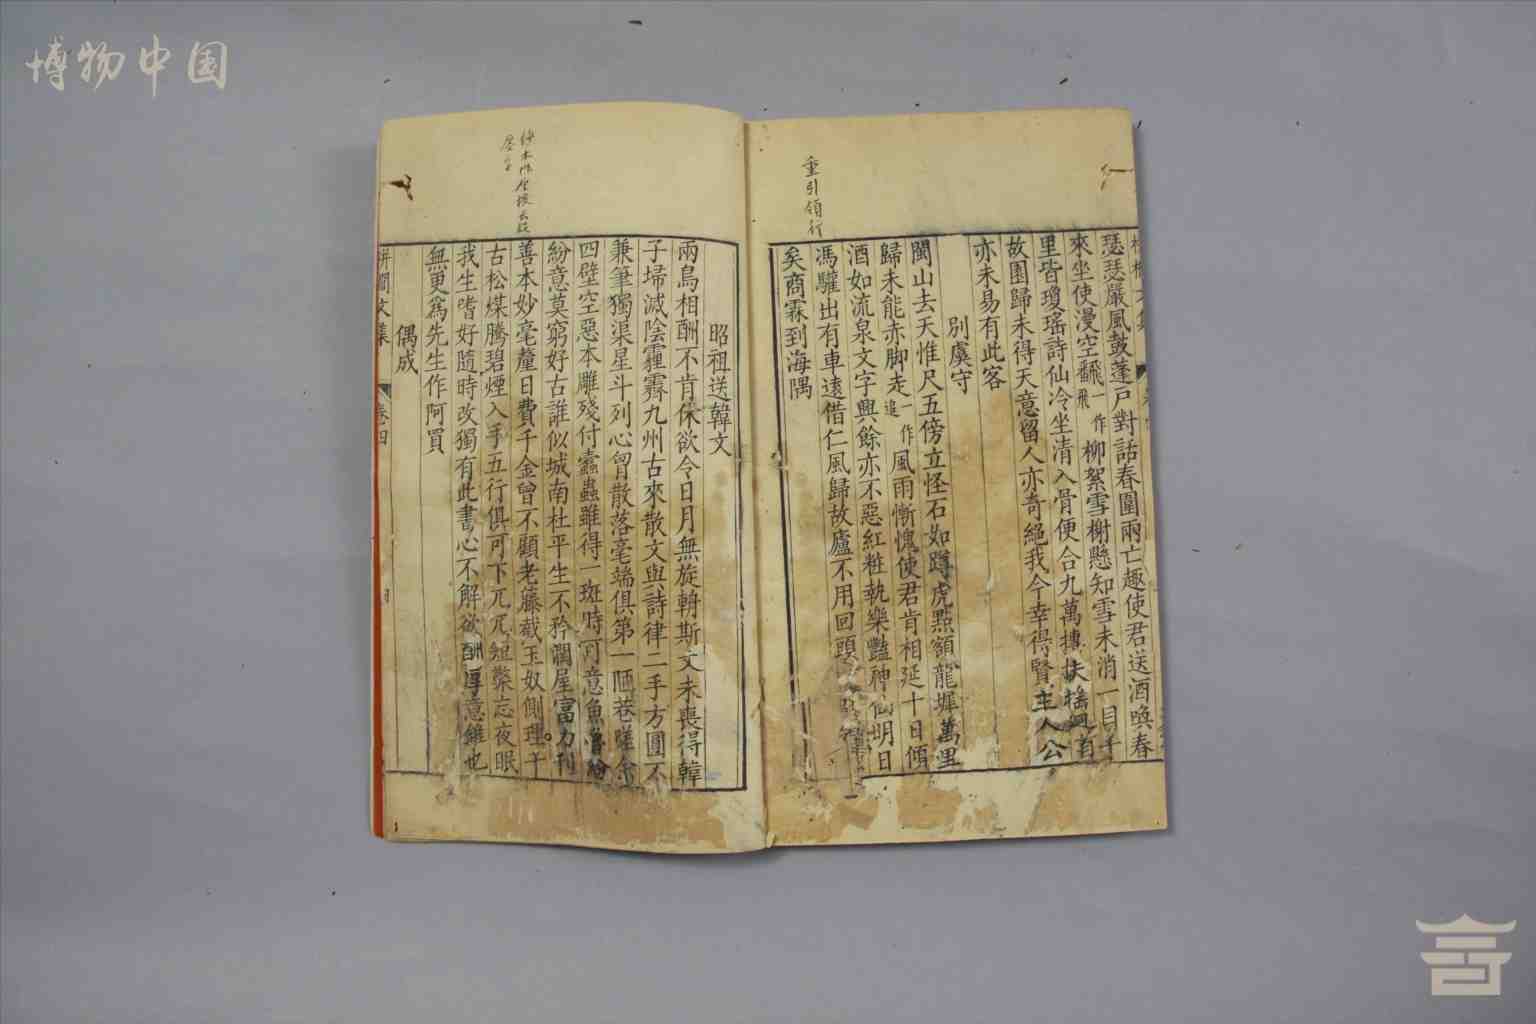 博物中国
瑟瑟嚴風鼓蓬戸對話春圍兩亡趣使君送酒喚春
來坐使漫空飜飛一作飛柳絮雪榭懸知雪未消一目千
里皆瓊瑶詩仙冷坐清入骨便合九萬摶扶摇回首
故園歸未得天意留人亦奇絕我今幸得賢主人公
亦未易有此客
別虞守
閩山去天惟尺五傍立怪石如蹲虎點額龍墀萬里
歸未能赤脚走一作追風雨慚愧使君肯相延十日傾
酒如流泉文字興餘亦不惡紅粧執樂豔神仙明日
馮驩出有車遠借仁風歸故廬不用回頭
矣商霖到海隅
重引領行
昭祖送韓文
兩鳥相酬不肯休欲令日月無旋輈斯文未喪得韓
子埽滅陰霾霽九州古來散文與詩律二手方圓不
兼筆獨渠星斗列心胷散落毫端俱第一陋巷嗟余
四壁空惡本雕殘付蠹蟲雖得一斑時可意魚魯紛
紛意莫窮好古誰似城南杜平生不矜潤屋富力刊
善本妙毫釐日費千金曾不顧老藤截玉奴側理千
古松煤騰碧煙入手五行俱可下兀兀短檠忘夜眠
我生嗜好隨時改獨有此書心不解欲酬厚意錐也
無更爲先生作阿買
偶成
栟櫚文集
卷四